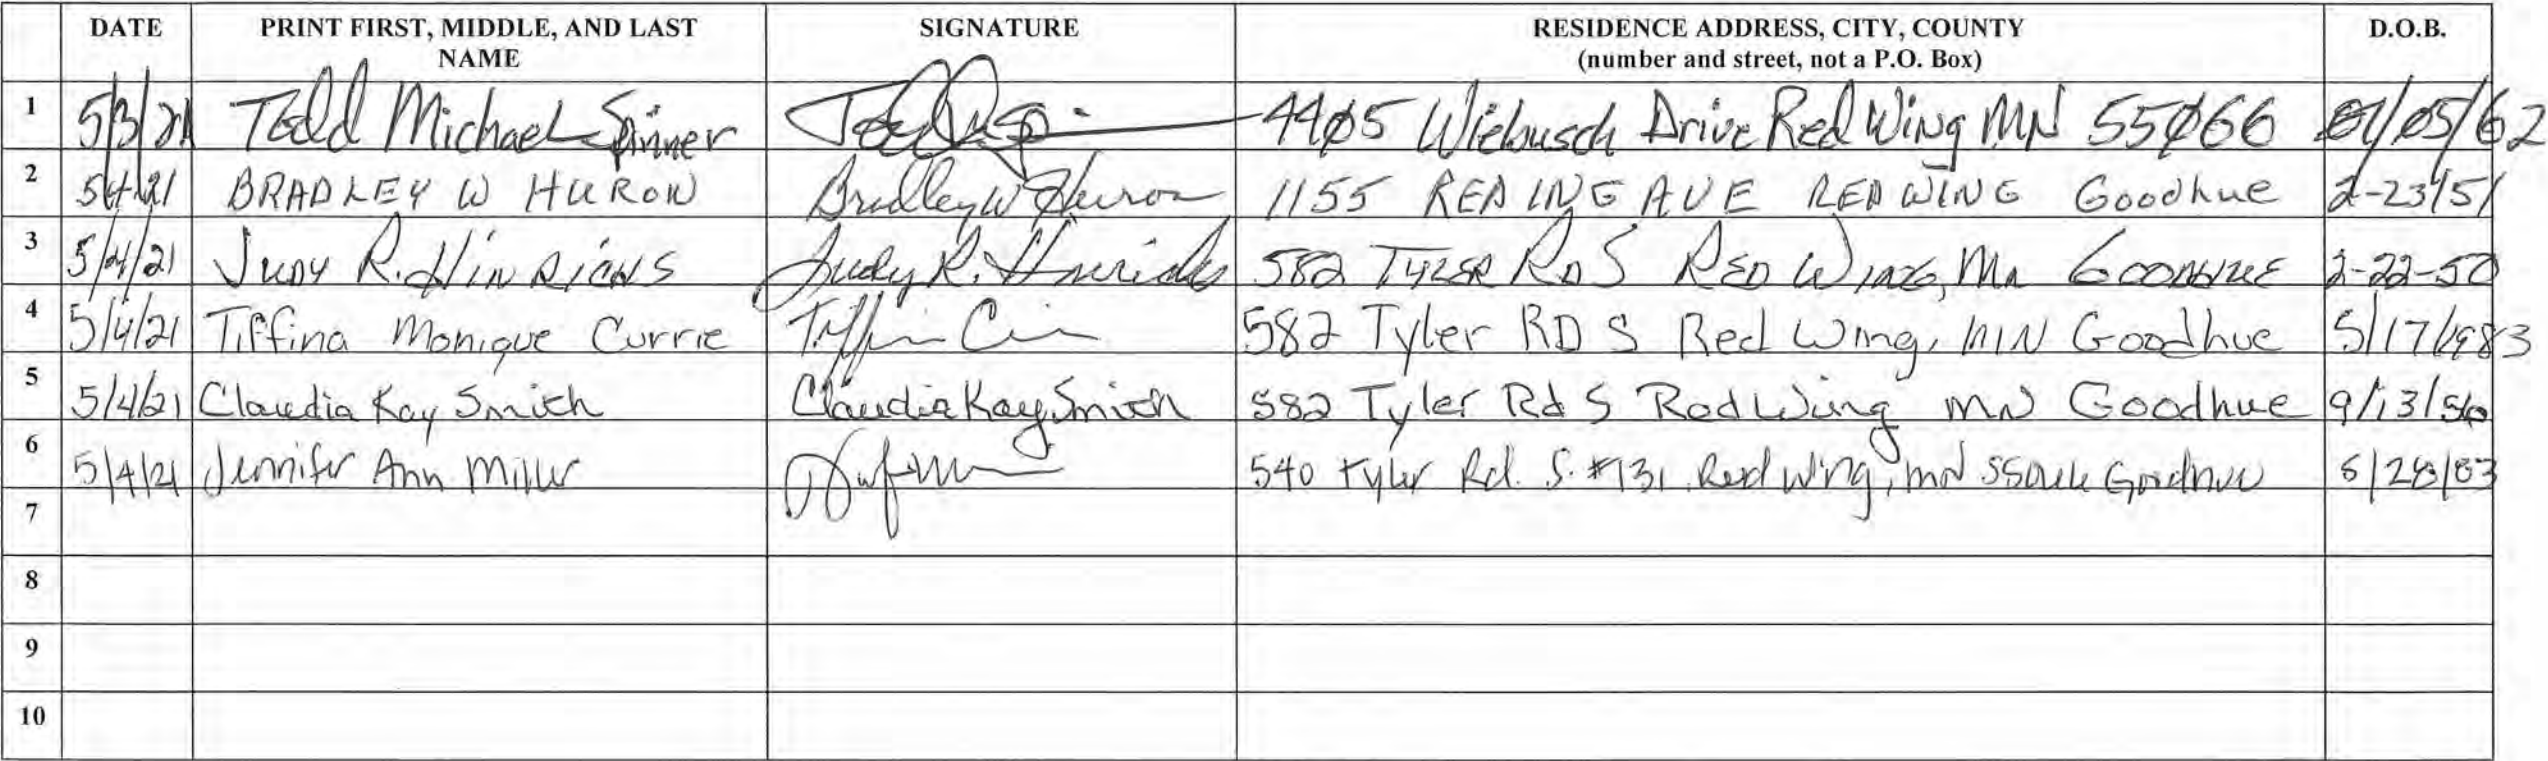 DATE PRINT FIRST, MIDDLE, AND LAST NAME SIGNATURE RESIDENCE ADDRESS, CITY, COUNTY (number and street, not a P.O. Box) D.O.B.
1 5/3/21 Todd Michael Spinner 4405 Wiebusch Drive Red Wing MN 55066 /05/62
2 5/4/21 BRADLEY W HURON Bradley W Huron 1155 RED ING AVE RED WING Goodhue 2-23-51
3 5/4/21 JUDY R. HINRICHS Judy R. Hinrichs 582 TYLER RD S RED WING, MN GOODHUE 2-22-50
4 5/4/21 Tiffina Monique Currie 582 Tyler RD S Red Wing, MN Goodhue 5/17/1983
5 5/4/21 Claudia Kay Smith Claudia Kay Smith 582 Tyler Rd S Red Wing MN Goodhue 9/13/56
6 5/4/21 Jennifer Ann Miller 540 Tyler Rd. S. #131 Red Wing, MN 55066 Goodhue /28/83
7
8
9
10